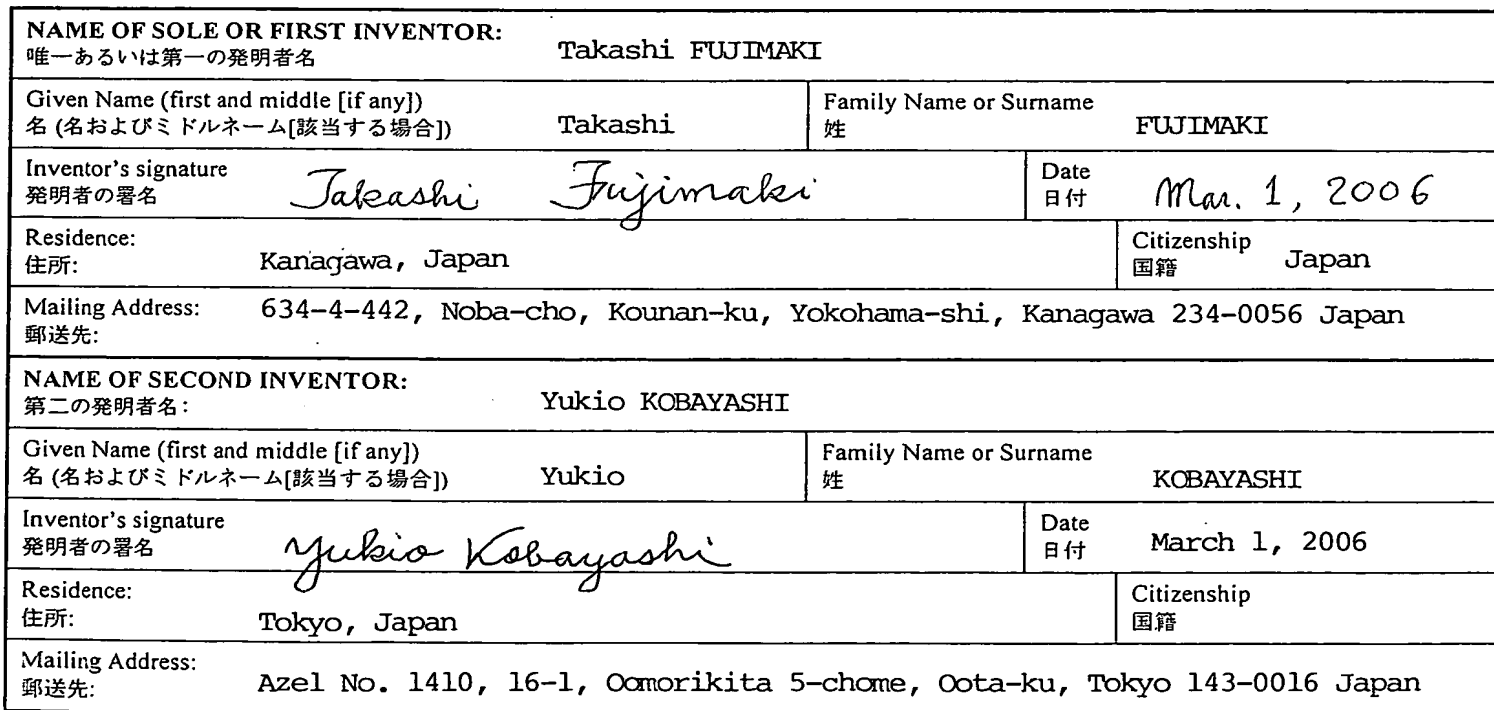 NAME OF SOLE OR FIRST INVENTOR:
唯一あるいは第一の発明者名
Takashi FUJIMAKI
Given Name (first and middle [if any])
名 (名およびミドルネーム[該当する場合])
Takashi
Family Name or Surname
姓
FUJIMAKI
Inventor's signature
発明者の署名
Takashi Fujimaki
Date
日付
Mar. 1, 2006
Residence:
住所:
Kanagawa, Japan
Citizenship
国籍
Japan
Mailing Address:
郵送先:
634-4-442, Noba-cho, Kounan-ku, Yokohama-shi, Kanagawa 234-0056 Japan
NAME OF SECOND INVENTOR:
第二の発明者名:
Yukio KOBAYASHI
Given Name (first and middle [if any])
名 (名およびミドルネーム[該当する場合])
Yukio
Family Name or Surname
姓
KOBAYASHI
Inventor's signature
発明者の署名
Yukio Kobayashi
Date
日付
March 1, 2006
Residence:
住所:
Tokyo, Japan
Citizenship
国籍
Mailing Address:
郵送先:
Azel No. 1410, 16-1, Oomorikita 5-chome, Oota-ku, Tokyo 143-0016 Japan